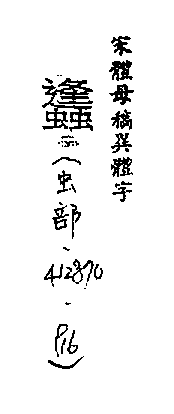 宋體母稿異體字
蠭(虫部、412870、P16)